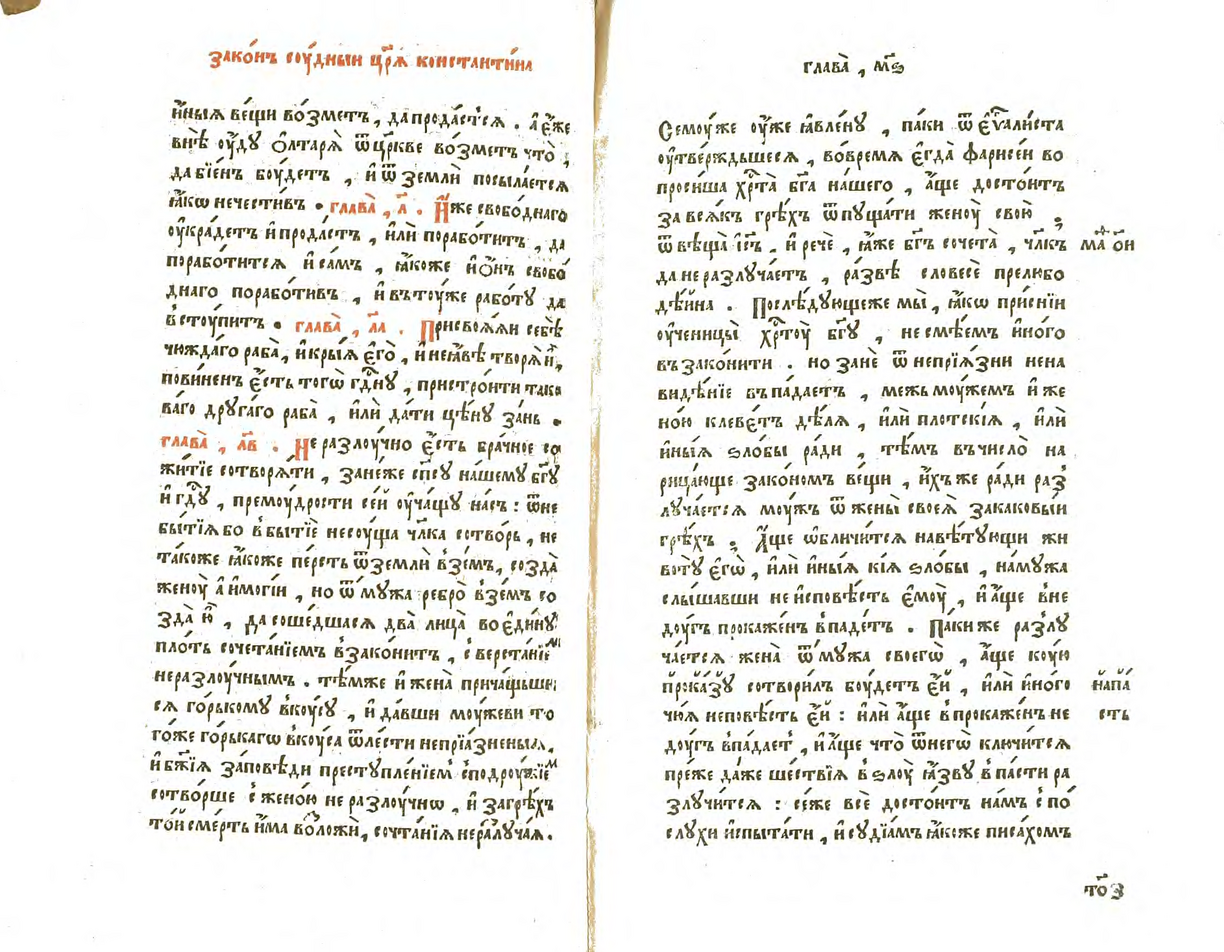 зако́нъ соу́дныи цр҃ѧ̀ константи́на
и҆́ныѧ ве́щи во́зметъ , да продасться . а҆ е҆́же
внѣ̀ ѹ҆́дꙋ ѻ҆лтарѧ̀ ѿ цр҃кве во́зметъ что̀ ,
да бїе́нъ боу́детъ , и҆ ѿ землѝ посыла́етсѧ
ꙗ҆́кѡ нечести́въ . глава̀ , л҃ . И҆́же свобо́днаго
оу҆кра́детъ и҆ прода́стъ , и҆лѝ порабо́титъ , да
порабо́титсѧ и҆ са́мъ , ꙗ҆́коже и҆ ѻ҆́нъ свобо́
днаго порабо́тивъ , и҆ въ тоу́же рабо́тꙋ да
встоу́питъ . глава̀ , л҃а . Присвоѧ́ѧи себѣ̀
чюжда́го раба̀ , и҆ кры́ѧ є҆го̀ , и҆ неꙗ҆́вѣ творѧ̀ и҆̀ ,
пови́ненъ є҆́сть того̀ гд҃нꙋ , пристро́ити тако
ва́го дрꙋга́го раба̀ , и҆лѝ да́ти цѣ́нꙋ за́нь .
глава̀ , л҃в . Не разлоу́чно є҆́сть бра́чное со
жи́тїе сотворѧ́ти , зане́же сп҃сꙋ на́шемꙋ бг҃ꙋ
и҆ гд҃ꙋ , премоу́дрости се́й оу҆ча́щꙋ на́съ : ѿ не
бытїѧ̀ бо в бытїѐ несоу́ща чл҃ка сотво́рь , не
та́коже ꙗ҆́коже пе́рсть ѿ землѝ взе́мъ , созда̀
женоу̀ а҆́ и҆ мо́гїи , но ѿ мꙋ́жа ребро̀ взе́мъ со
зда̀ ю҆̀ , да соше́дшасѧ два̀ лица̀ во є҆ди́нꙋ
пло́ть сочета́нїемъ взако́нитъ , с верста́нїеⷨ
неразлоу́чнымъ . тѣ́мже и҆ жена̀ причащьши
сѧ го́рькомꙋ вкоу́сꙋ , и҆ да́вши моу́жеви то
го́же го́рькагѡ вкоу́са ѿ ле́сти непрїа́зненыѧ ,
и҆ бж҃їѧ за́повѣди престꙋпле́нїемъ сподроу́жїеⷨ
сотво́рше с жено́ю не разлоу́чнѡ , и҆ за грѣ́хъ
то́й сме́рть и҆́ма вложѝ , сочта́нїѧ нерⷥалꙋчаѧ .
глава̀ , м҃ѕ
Семоу́же оу҆́же ꙗ҆вле́нꙋ , па́ки ѿ є҆ѵⷢ҇алиста
оу҆твержды́шесѧ , во вре́мѧ є҆гда̀ фарисе́и во
проси́ша хр҇та̀ бг҃а на́шего , а҆́ще досто́итъ
за всѧ́къ грѣ́хъ ѿпꙋща́ти женоу̀ свою̀ ;
ѿвѣща̀ і҆с҃ъ , и҆ речѐ , ꙗ҆́же бг҃ъ сочета̀ , чл҃къ
маⷴ ѻ҃и
да не разлꙋча́етъ , ра́звѣ словесѐ прелюбо
дѣ́йна . Послѣ́дꙋющеже мы̀ , ꙗ҆́кѡ при́снїи
оу҆ченицы̀ хр҇тоу̀ бг҃ꙋ , не смѣ́емъ и҆но́го
въ зако́нити . но занѐ ѿ непрїѧ́зни нена
ви́дѣнїе въпа́даетъ , межь моу́жемъ и҆ же
но́ю клеве́тъ дѣ́лѧ , и҆лѝ пло́тскїѧ , и҆лѝ
и҆ны́ѧ ѕло́бы ра́ди , тѣ́мъ въ число̀ на
рица́юще зако́номъ ве́щи , и҆́хъ же ра́ди раз
лꙋча́етсѧ моу́жъ ѿ жены̀ своеѧ̀ за какоовы́и
грѣ́хъ ; А҆́ще ѡ҆бличи́тсѧ навѣ́тꙋющи жи
вотꙋ̀ є҆гѡ̀ , и҆лѝ и҆ны́ѧ кі́ѧ ѕло́бы , на мꙋ́жа
слы́шавши не и҆сповѣ́сть є҆моу̀ , и҆ а҆́ще вне
доу́гъ прокаже́нъ впаде́тъ . Па́ки же разлꙋ
ча́етсѧ жена̀ ѿ мꙋ́жа своегѡ̀ , а҆́ще коу́ю
прока́зꙋ сотвори́лъ боу́детъ є҆́й , и҆лѝ и҆но́го
напа́
чюѧ̀ неповѣ́сть є҆́й : и҆лѝ а҆́ще впрокаже́нъ не
сть
доу́гъ впада́етъ , и҆ а҆́ще что̀ ѿ негѡ̀ ключи́тсѧ
пре́же да́же ше́ствїѧ в ѕлоу̀ ꙗ҆́звꙋ впа́сти ра
злꙋчи́тсѧ : се́же всѐ досто́итъ на́мъ с по́
слꙋхи и҆спыта́ти , и҆ сꙋдїа́мъ ꙗ҆́коже писа́хомъ
т҃ѻз